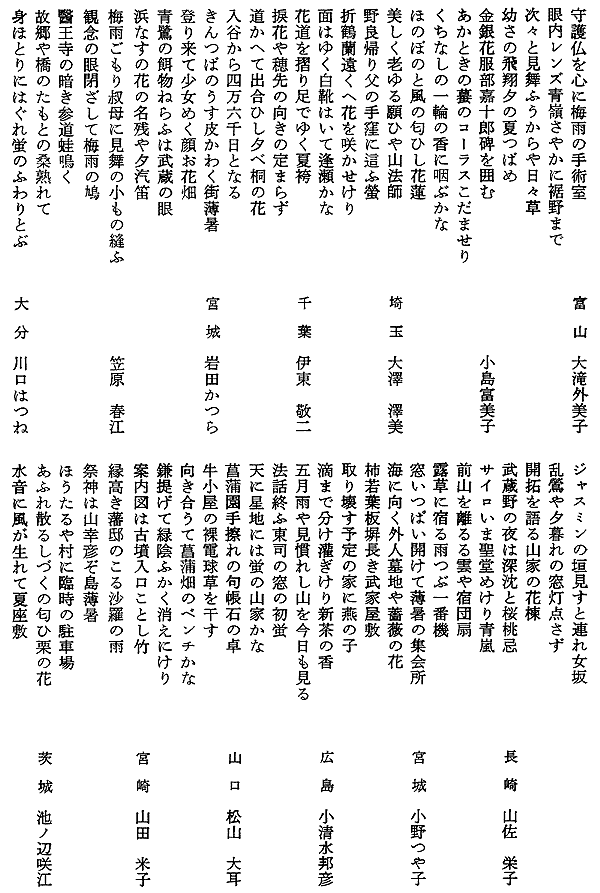 守護仏を心に梅雨の手術室　富山　大滝外美子
眼内レンズ青嶺さやかに裾野まで
次々と見舞ふうからや日々草
幼さの飛翔夕の夏つばめ
金銀花服部嘉十郎碑を囲む　小島富美子
あかときの蟇のコーラスこだませり
くちなしの一輪の香に咽ぶかな
ほのぼのと風の匂ひし花蓮
美しく老ゆる願ひや山法師　埼玉　大澤　澤美
野良帰り父の手窪に這ふ螢
折鶴蘭遠くへ花を咲かせけり
面はゆく白靴はいて逢瀬かな
花道を摺り足でゆく夏袴　千葉　伊東　敬二
捩花や穂先の向きの定まらず
道かへて出合ひし夕べ桐の花
入谷から四万六千日となる
きんつばのうす皮かわく街薄暑　宮城　岩田かつら
登り来て少女めく顔お花畑
青鷺の餌物ねらふは武蔵の眼
浜なすの花の名残や夕汽笛
梅雨ごもり叔母に見舞の小もの縫ふ　笠原　春江
観念の眼閉ざして梅雨の鳩
醫王寺の暗き参道蛙鳴く
故郷や橋のたもとの桑熟れて
身ほとりにはぐれ蛍のふわりとぶ　大分　川口はつね
ジャスミンの垣見すと連れ女坂
乱鶯や夕暮れの窓灯点さず
開拓を語る山家の花棟
武蔵野の夜は深沈と桜桃忌　長崎　山佐　栄子
サイロいま聖堂めけり青嵐
前山を離るる雲や宿団扇
露草に宿る雨つぶ一番機
窓いっぱい開けて薄暑の集会所　宮城　小野つや子
海に向く外人墓地や薔薇の花
柿若葉板塀長き武家屋敷
取り壊す予定の家に燕の子
滴まで分け灌ぎけり新茶の香　広島　小清水邦彦
五月雨や見慣れし山を今日も見る
法話終ふ東司の窓の初蛍
天に星地には蛍の山家かな
菖蒲園手擦れの句帳石の卓　山口　松山　大耳
牛小屋の裸電球草を干す
向き合うて菖蒲畑のベンチかな
鎌提げて緑陰ふかく消えにけり
案内図は古墳入口ことし竹　宮崎　山田　米子
縁高き藩邸のこる沙羅の雨
祭神は山幸彦ぞ島薄暑
ほうたるや村に臨時の駐車場
あふれ散るしづくの匂ひ栗の花　茨城　池ノ辺咲江
水音に風が生れて夏座敷